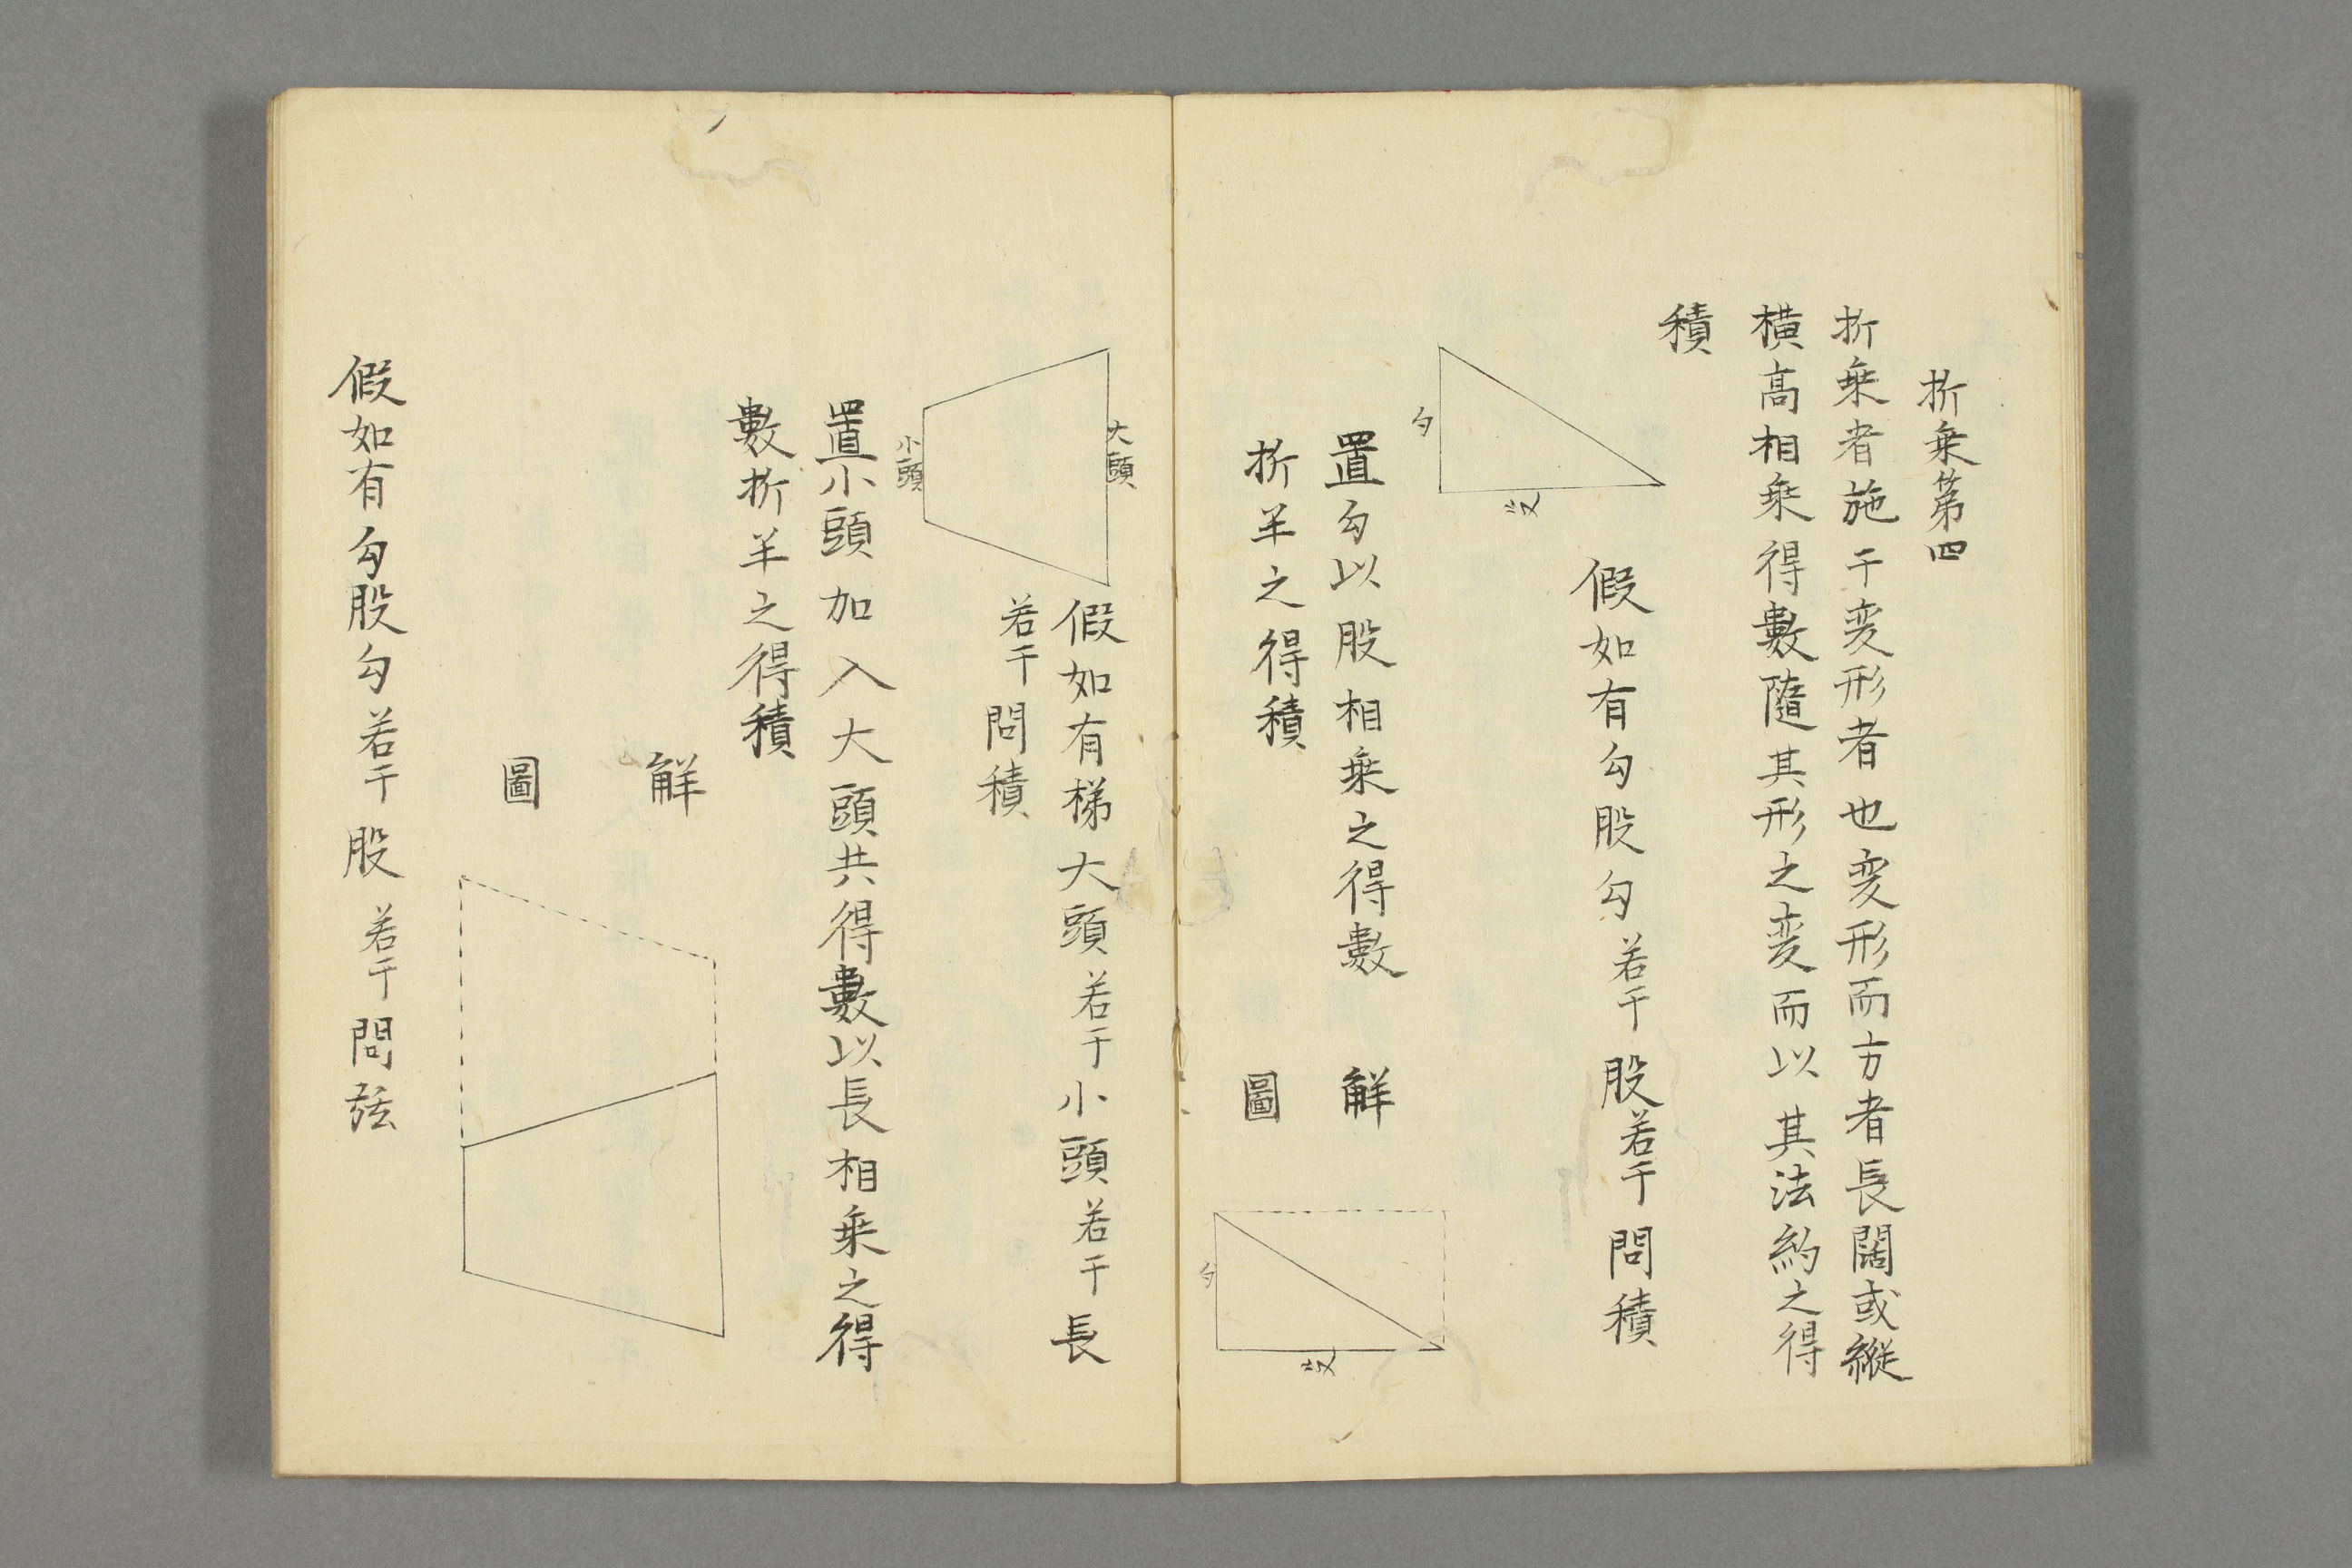 折乗第四
折乗者施干変形者也変形而方者長闊或縦
横高相乗得數隨其形之変而以其法約之得
積
勾
股
假如有勾股勾若干股若干問積
置勾以股相乗之得數
折半之得積
解
圖
勾
股
大頭
小頭
假如有梯大頭若干小頭若干長
若干問積
置小頭加入大頭共得數以長相乗之得
數折半之得積
解
圖
假如有勾股勾若干股若干問弦